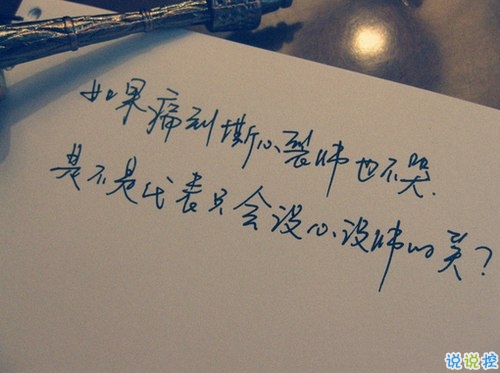 如果痛到撕心裂肺也不哭.
是不是代表只会没心没肺的笑?
说说控